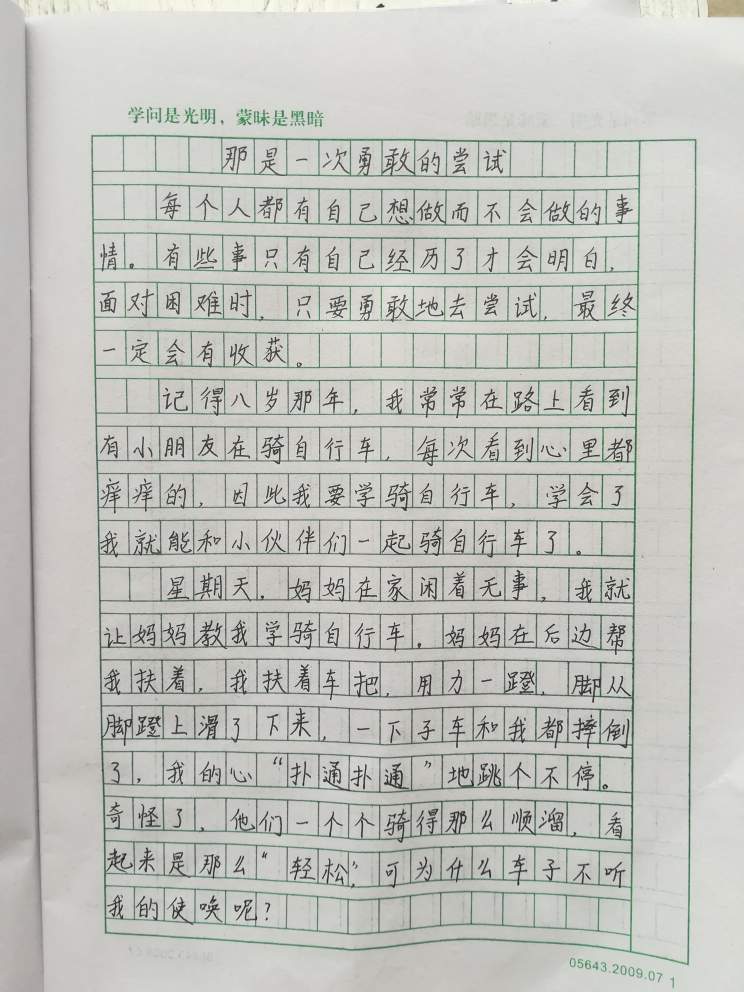 学问是光明，蒙昧是黑暗
那是一次勇敢的尝试
每个人都有自己想做而不会做的事
情。有些事只有自己经历了才会明白，
面对困难时，只要勇敢地去尝试，最终
一定会有收获。
记得八岁那年，我常常在路上看到
有小朋友在骑自行车，每次看到心里都
痒痒的，因此我要学骑自行车，学会了
我就能和小伙伴们一起骑自行车了。
星期天，妈妈在家闲着无事，我就
让妈妈教我学骑自行车。妈妈在后边帮
我扶着，我扶着车把，用力一蹬，脚从
脚蹬上滑了下来，一下子车和我都摔倒
了，我的心“扑通扑通”地跳个不停。
奇怪了，他们一个个骑得那么顺溜，看
起来是那么“轻松”，可为什么车子不听
我的使唤呢？
05643.2009.07 1